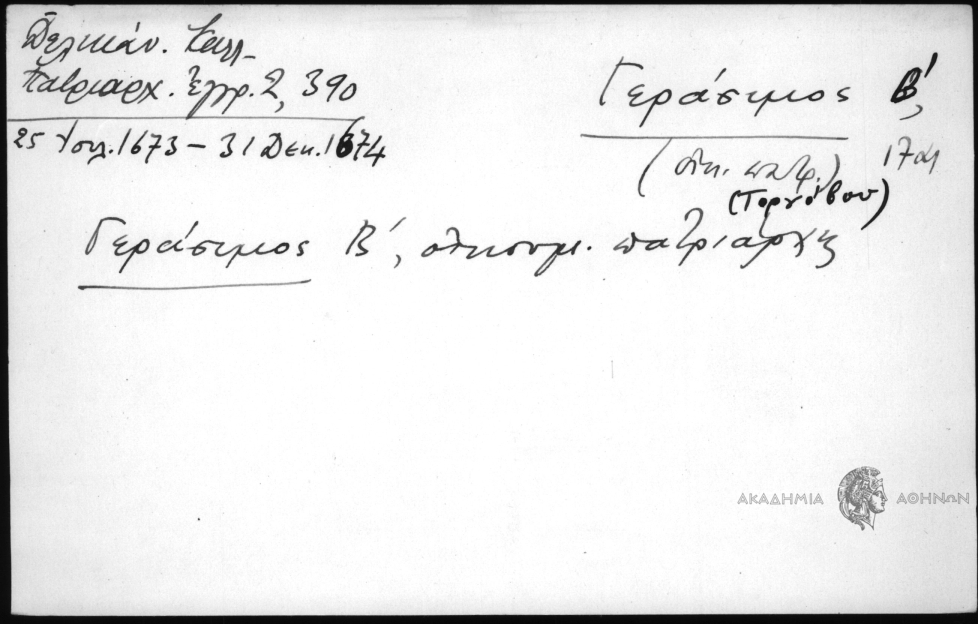 Δελικάν. Καλλ.
Πατριαρχ. Έγγρ. 2, 390
25 Ιουλ. 1673 – 31 Δεκ. 1674
Γεράσιμος Β΄,
(οἰκ. πατρ.) 17
(Τορνόβου)
Γεράσιμος Β΄, οἰκουμ. πατριάρχης
ΑΚΑΔΗΜΙΑ ΑΘΗΝΩΝ